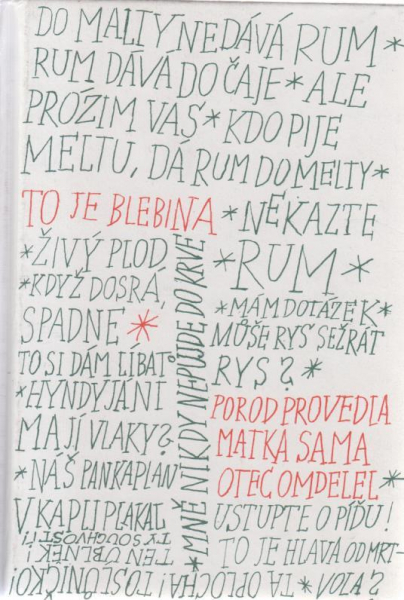 DO MALTY NEDÁVÁ RUM *
RUM DÁVÁ DO ČAJE * ALE
PROZIM VAS * KDO PIJE
MELTU, DÁ RUM DO MELTY *
TO JE BLEBINA * NEKAZTE
* ŽIVÝ PLOD
* KDYŽ DOSRÁ,
SPADNE *
TO SI DÁM LÍBAT
* HYNDYJÁNI
MAJÍ VLAKY?
* NÁŠ PANKAPLAN
V KAPLI PLAKAL
TY SOUCHVOSTI!
TEN ÚBLNĚK!
* MNĚ NIKDY NEPUJDE DO KRVE
RUM *
* MÁM DOTÁZEK *
MŮŠE RYS SEŽRÁT
RYS? *
POROD PROVEDLA
MATKA SAMA
OTEC OMDELEL *
USTUPTE O PÍĎU!
TO JE HLAVA OD MRT-
VOLA? *
TA OPLOCHA! TO SLŮNÍČKO!